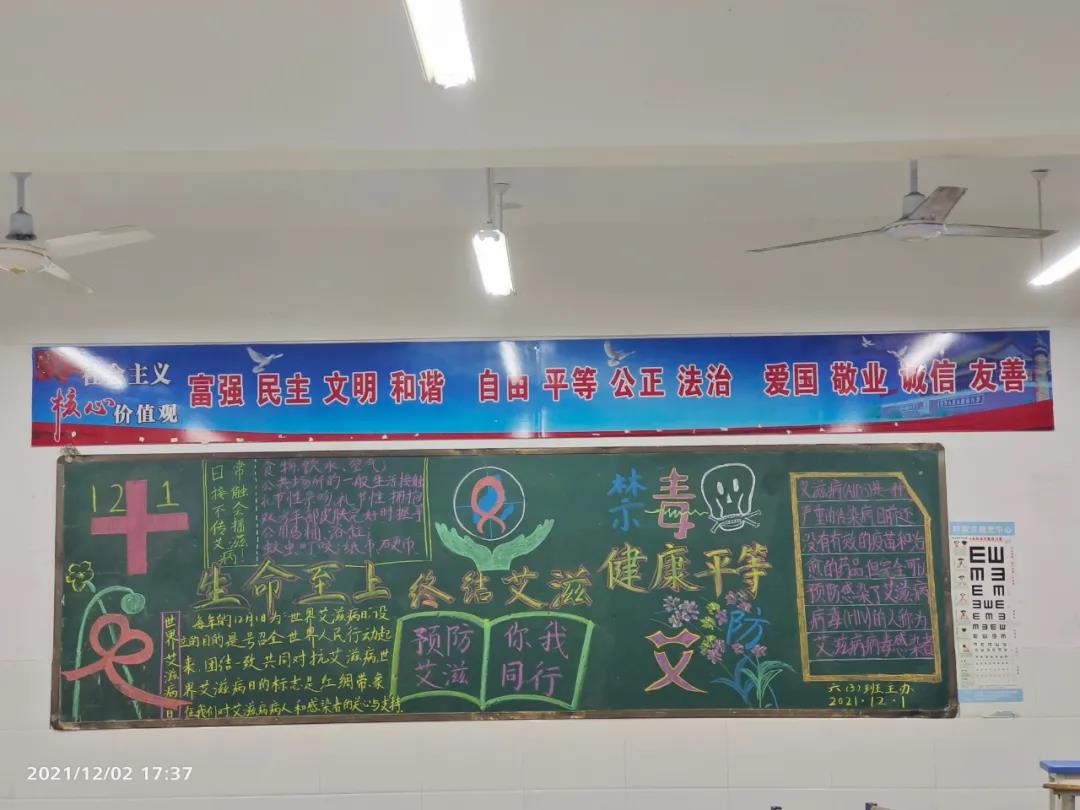 社会主义
核心价值观
富强 民主 文明 和谐 自由 平等 公正 法治 爱国 敬业 诚信 友善
12 1
日常
接触
不会
传播
艾滋
病!
食物、饮水、空气;
公共场所的一般生活接触
礼节性亲吻、礼节性拥抱
双方手部皮肤完好时握手
公用马桶、浴缸;
蚊虫叮咬;纸币、硬币.
禁毒
生命至上 终结艾滋 健康平等
世界艾滋病日
每年的12月1日为“世界艾滋病日”设
立的目的是号召全世界人民行动起
来,团结一致共同对抗艾滋病.世
界艾滋病日的标志是红绸带.象
征我们对艾滋病病人和感染者的关心与支持.
预防
艾滋
你我
同行
防
艾
艾滋病(AIDS)是一种
严重的传染病目前还
没有有效的疫苗和治
愈的药品但完全可
预防感染了艾滋病
病毒(HIV)的人称为
艾滋病病毒感染者
六(3)班主办
2021.12.1
2021/12/02 17:37